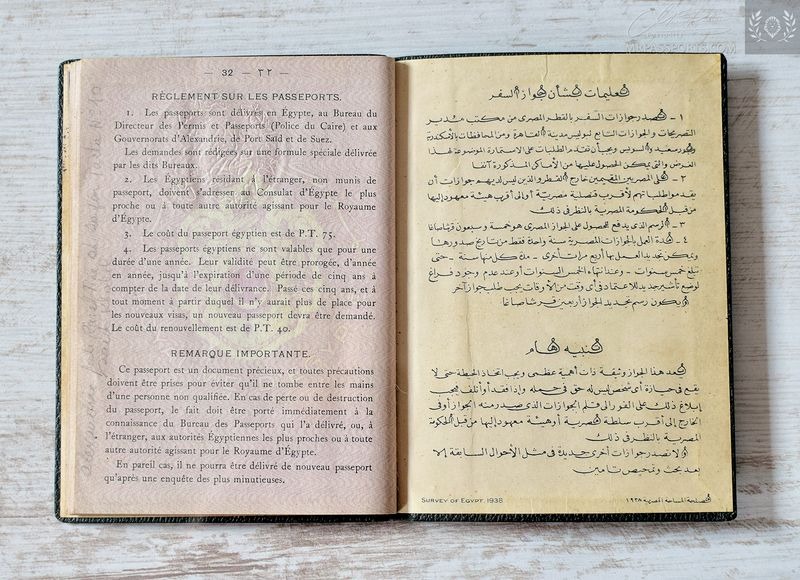 — 32 — ٣٢ —
RÈGLEMENT SUR LES PASSEPORTS.
1. Les passeports sont délivrés en Égypte, au Bureau du
Directeur des Permis et Passeports (Police du Caire) et aux
Gouvernorats d'Alexandrie, de Port Saïd et de Suez.
Les demandes sont rédigées sur une formule spéciale délivrée
par les dits Bureaux.
2. Les Égyptiens résidant à l'étranger, non munis de
passeport, doivent s'adresser au Consulat d'Égypte le plus
proche ou à toute autre autorité agissant pour le Royaume
d'Égypte.
3. Le coût du passeport égyptien est de P.T. 75.
4. Les passeports égyptiens ne sont valables que pour une
durée d'une année. Leur validité peut être prorogée, d'année
en année, jusqu'à l'expiration d'une période de cinq ans à
compter de la date de leur délivrance. Passé ces cinq ans, et à
tout moment à partir duquel il n'y aurait plus de place pour
les nouveaux visas, un nouveau passeport devra être demandé.
Le coût du renouvellement est de P.T. 40.
REMARQUE IMPORTANTE.
Ce passeport est un document précieux, et toutes précautions
doivent être prises pour éviter qu'il ne tombe entre les mains
d'une personne non qualifiée. En cas de perte ou de destruction
du passeport, le fait doit être porté immédiatement à la
connaissance du Bureau des Passeports qui l'a délivré, ou, à
l'étranger, aux autorités Égyptiennes les plus proches ou à toute
autre autorité agissant pour le Royaume d'Égypte.
En pareil cas, il ne pourra être délivré de nouveau passeport
qu'après une enquête des plus minutieuses.
تعليمات بشأن جواز السفر
١ – تصدر جوازات السفر بالقطر المصرى من مكتب مدير
التصريحات والجوازات التابع لبوليس مدينة القاهرة ومن المحافظات بالاسكندرية
وبورسعيد والسويس ويجب أن تقدم الطلبات على الاستمارة الموضوعة لهذا
الغرض والتى يمكن الحصول عليها من الأماكن المذكورة آنفا
٢ – على المصريين المقيمين خارج القطر والذين ليس لديهم جوازات أن
يقدموا طلباتهم لأقرب قنصلية مصرية أو الى أقرب هيئة معهود إليها
من قبل الحكومة المصرية بالنظر فى ذلك
٣ – الرسم الذى يدفع للحصول على الجواز المصرى هو خمسة وسبعون قرشا صاغا
٤ – مدة العمل بالجوازات المصرية سنة واحدة فقط من تاريخ صدورها
ويمكن تجديد العمل بها أربع مرات أخرى – مدة كل منها سنة – حتى
تبلغ خمس سنوات – وعند انتهاء الخمس السنوات أو عند عدم وجود فراغ
لوضع تأشير جديد للاعتماد فى أى وقت من الأوقات يجب طلب جواز آخر
ويكون رسم تجديد الجواز أربعين قرشا صاغا
تنبيه هام
يعد هذا الجواز وثيقة ذات أهمية عظمى ويجب اتخاذ الحيطة حتى لا
يقع فى حيازة أى شخص ليس له حق فى حمله وإذا فقد أو أتلف فيجب
إبلاغ ذلك على الفور الى قلم الجوازات الذى صدر منه الجواز أو فى
الخارج إلى أقرب سلطة مصرية أو هيئة معهود إليها من قبل الحكومة
المصرية بالنظر فى ذلك
ولا تصدر جوازات أخرى جديدة فى مثل الأحوال السابقة إلا
بعد بحث وتمحيص تامين
SURVEY OF EGYPT, 1938 مصلحة المساحة المصرية ١٩٣٨
MRPASSPORTS.COM